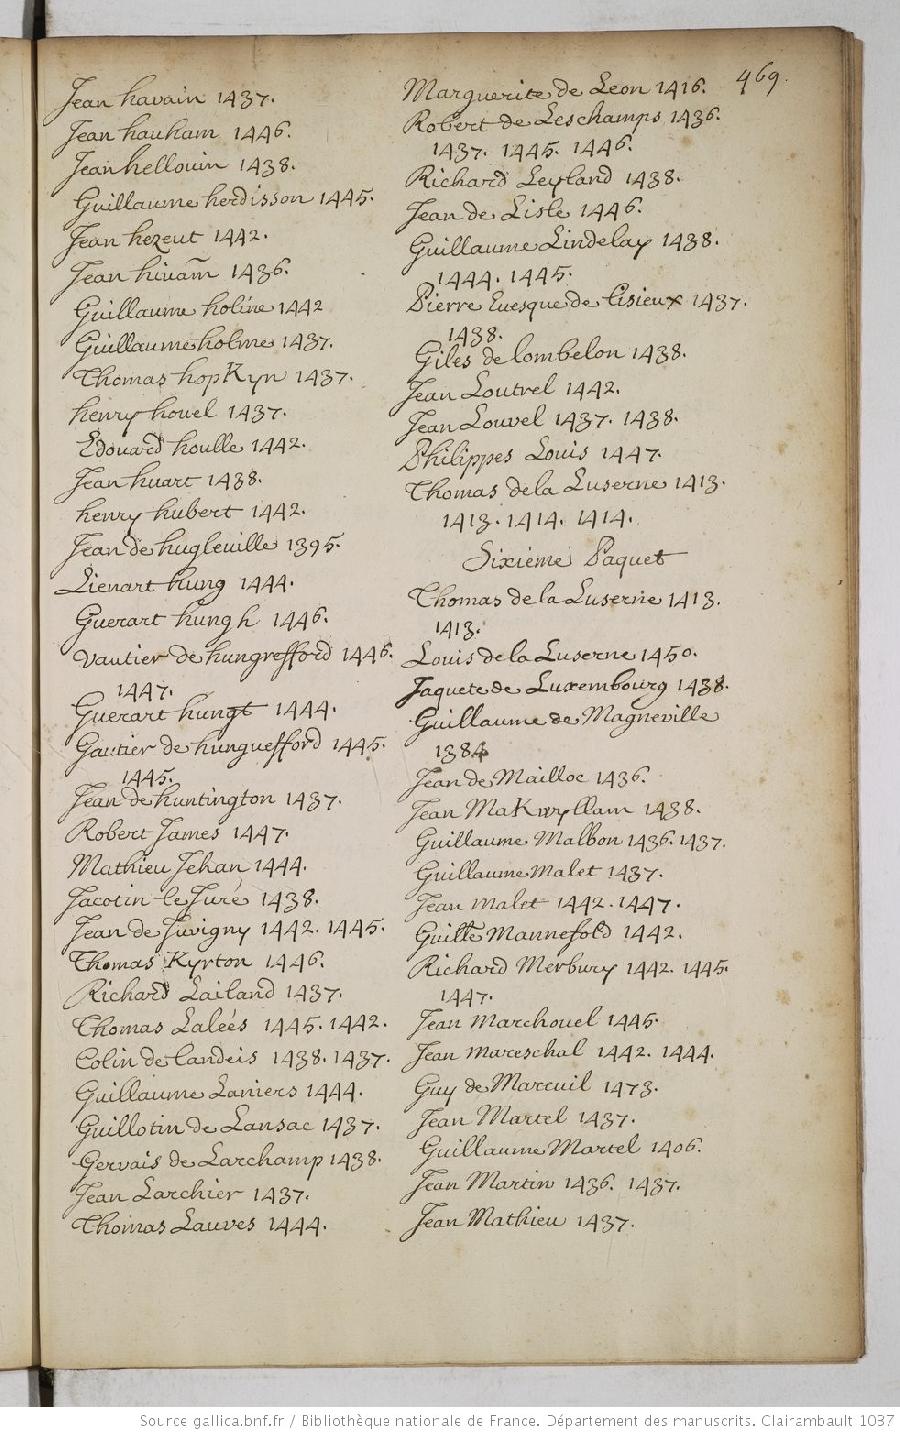 469.
Jean havain 1437.
Jean hauham 1446.
Jean hellouin 1438.
Guillaume herdisson 1445.
Jean hezeut 1442.
Jean hiuam̃ 1436.
Guillaume holine 1442
Guillaume holme 1437.
Thomas hopKyn 1437.
henry houel 1437.
Edouard houlle 1442.
Jean huart 1438.
henry hubert 1442.
Jean de hugleuille 1395.
Lienart hung 1444.
Guerart hungh 1446.
Vautier de hungrefford 1446.
1447.
Guerart hungt 1444.
Gautier de hunguefford 1445.
1445.
Jean de huntington 1437.
Robert James 1447.
Mathieu Jehan 1444.
Jacotin le Juré 1438.
Jean de Juvigny 1442. 1445.
Thomas Kyrton 1446.
Richard Lailand 1437.
Thomas Laleés 1445. 1442.
Colin de Landeis 1438. 1437.
Guillaume Laniers 1444.
Guillotin de Lansac 1437.
Gervais de Larchamp 1438.
Jean Larchier 1437.
Thomas Lauves 1444.
Marguerite de Leon 1416.
Robert de Leschamps 1436.
1437. 1445. 1446.
Richard Leyland 1438.
Jean de Lisle 1446.
Guillaume Lindelay 1438.
1444. 1445.
Pierre Euesque de Lisieux 1437.
1438.
Giles de Lombelon 1438.
Jean Loutrel 1442.
Jean Louvel 1437. 1438.
Philippes Louis 1447.
Thomas de la Luserne 1413.
1413. 1414. 1414.
Sixiéme Paquet
Thomas de la Luserne 1413.
1413.
Louis de la Luserne 1450.
Jaquete de Luxembourg 1438.
Guillaume de Magneville
1384
Jean de Mailloc 1436.
Jean MaKwyllam 1438.
Guillaume Malbon 1436. 1437.
Guillaume Malet 1437.
Jean Malet 1442. 1447.
Guille Mannefold 1442.
Richard Merbury 1442. 1445.
1447.
Jean Marchouel 1445.
Jean Mareschal 1442. 1444.
Guy de Mareuil 1473.
Jean Martel 1437.
Guillaume Martel 1406.
Jean Martin 1436. 1437.
Jean Mathieu 1437.
Source gallica.bnf.fr / Bibliothèque nationale de France. Département des manuscrits. Clairambault 1037